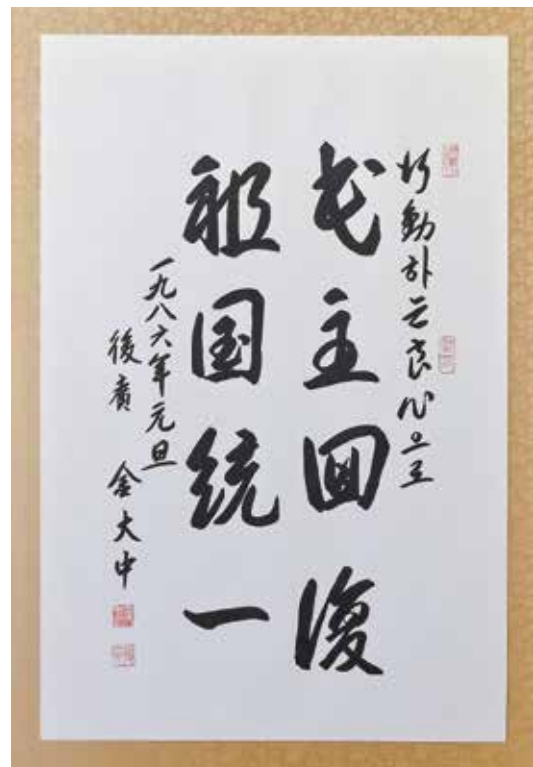 行動하는良心으로
民主回復
祖国統一
一九八六年元旦
後廣 金大中